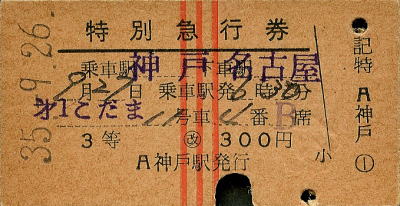 特別急行券
35.9.26
乗車駅 神戸 下車駅 名古屋
9月27日 乗車駅発6時30分
才1こだま 11号車4番B席
3等 改 300円
A神戸駅発行
小
記特 A神戸 1